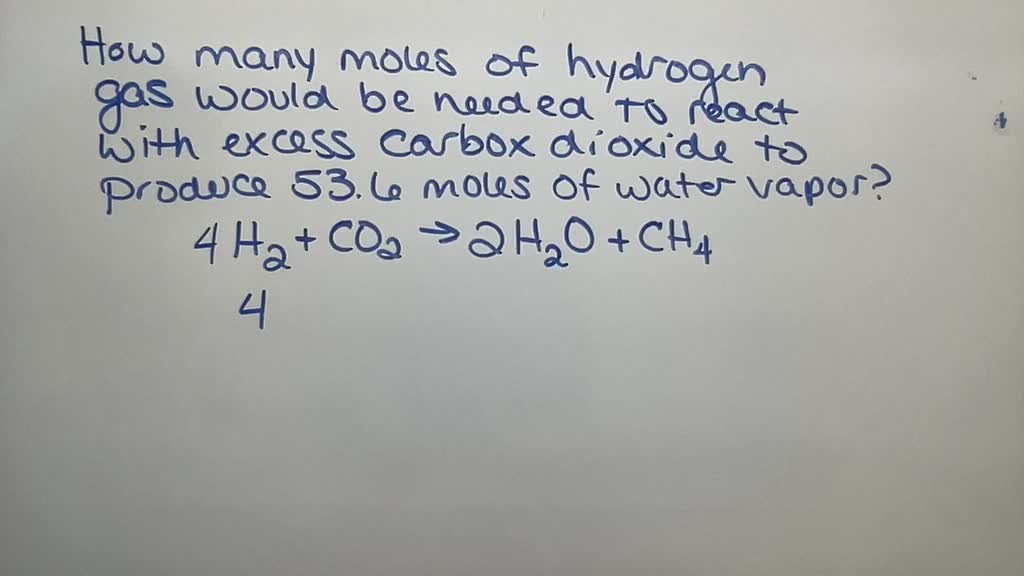 How many moles of hydrogen
gas would be needed to react
with excess carbox dioxide to
produce 53.6 moles of water vapor?
4 H₂ + CO₂ → 2 H₂O + CH₄
4